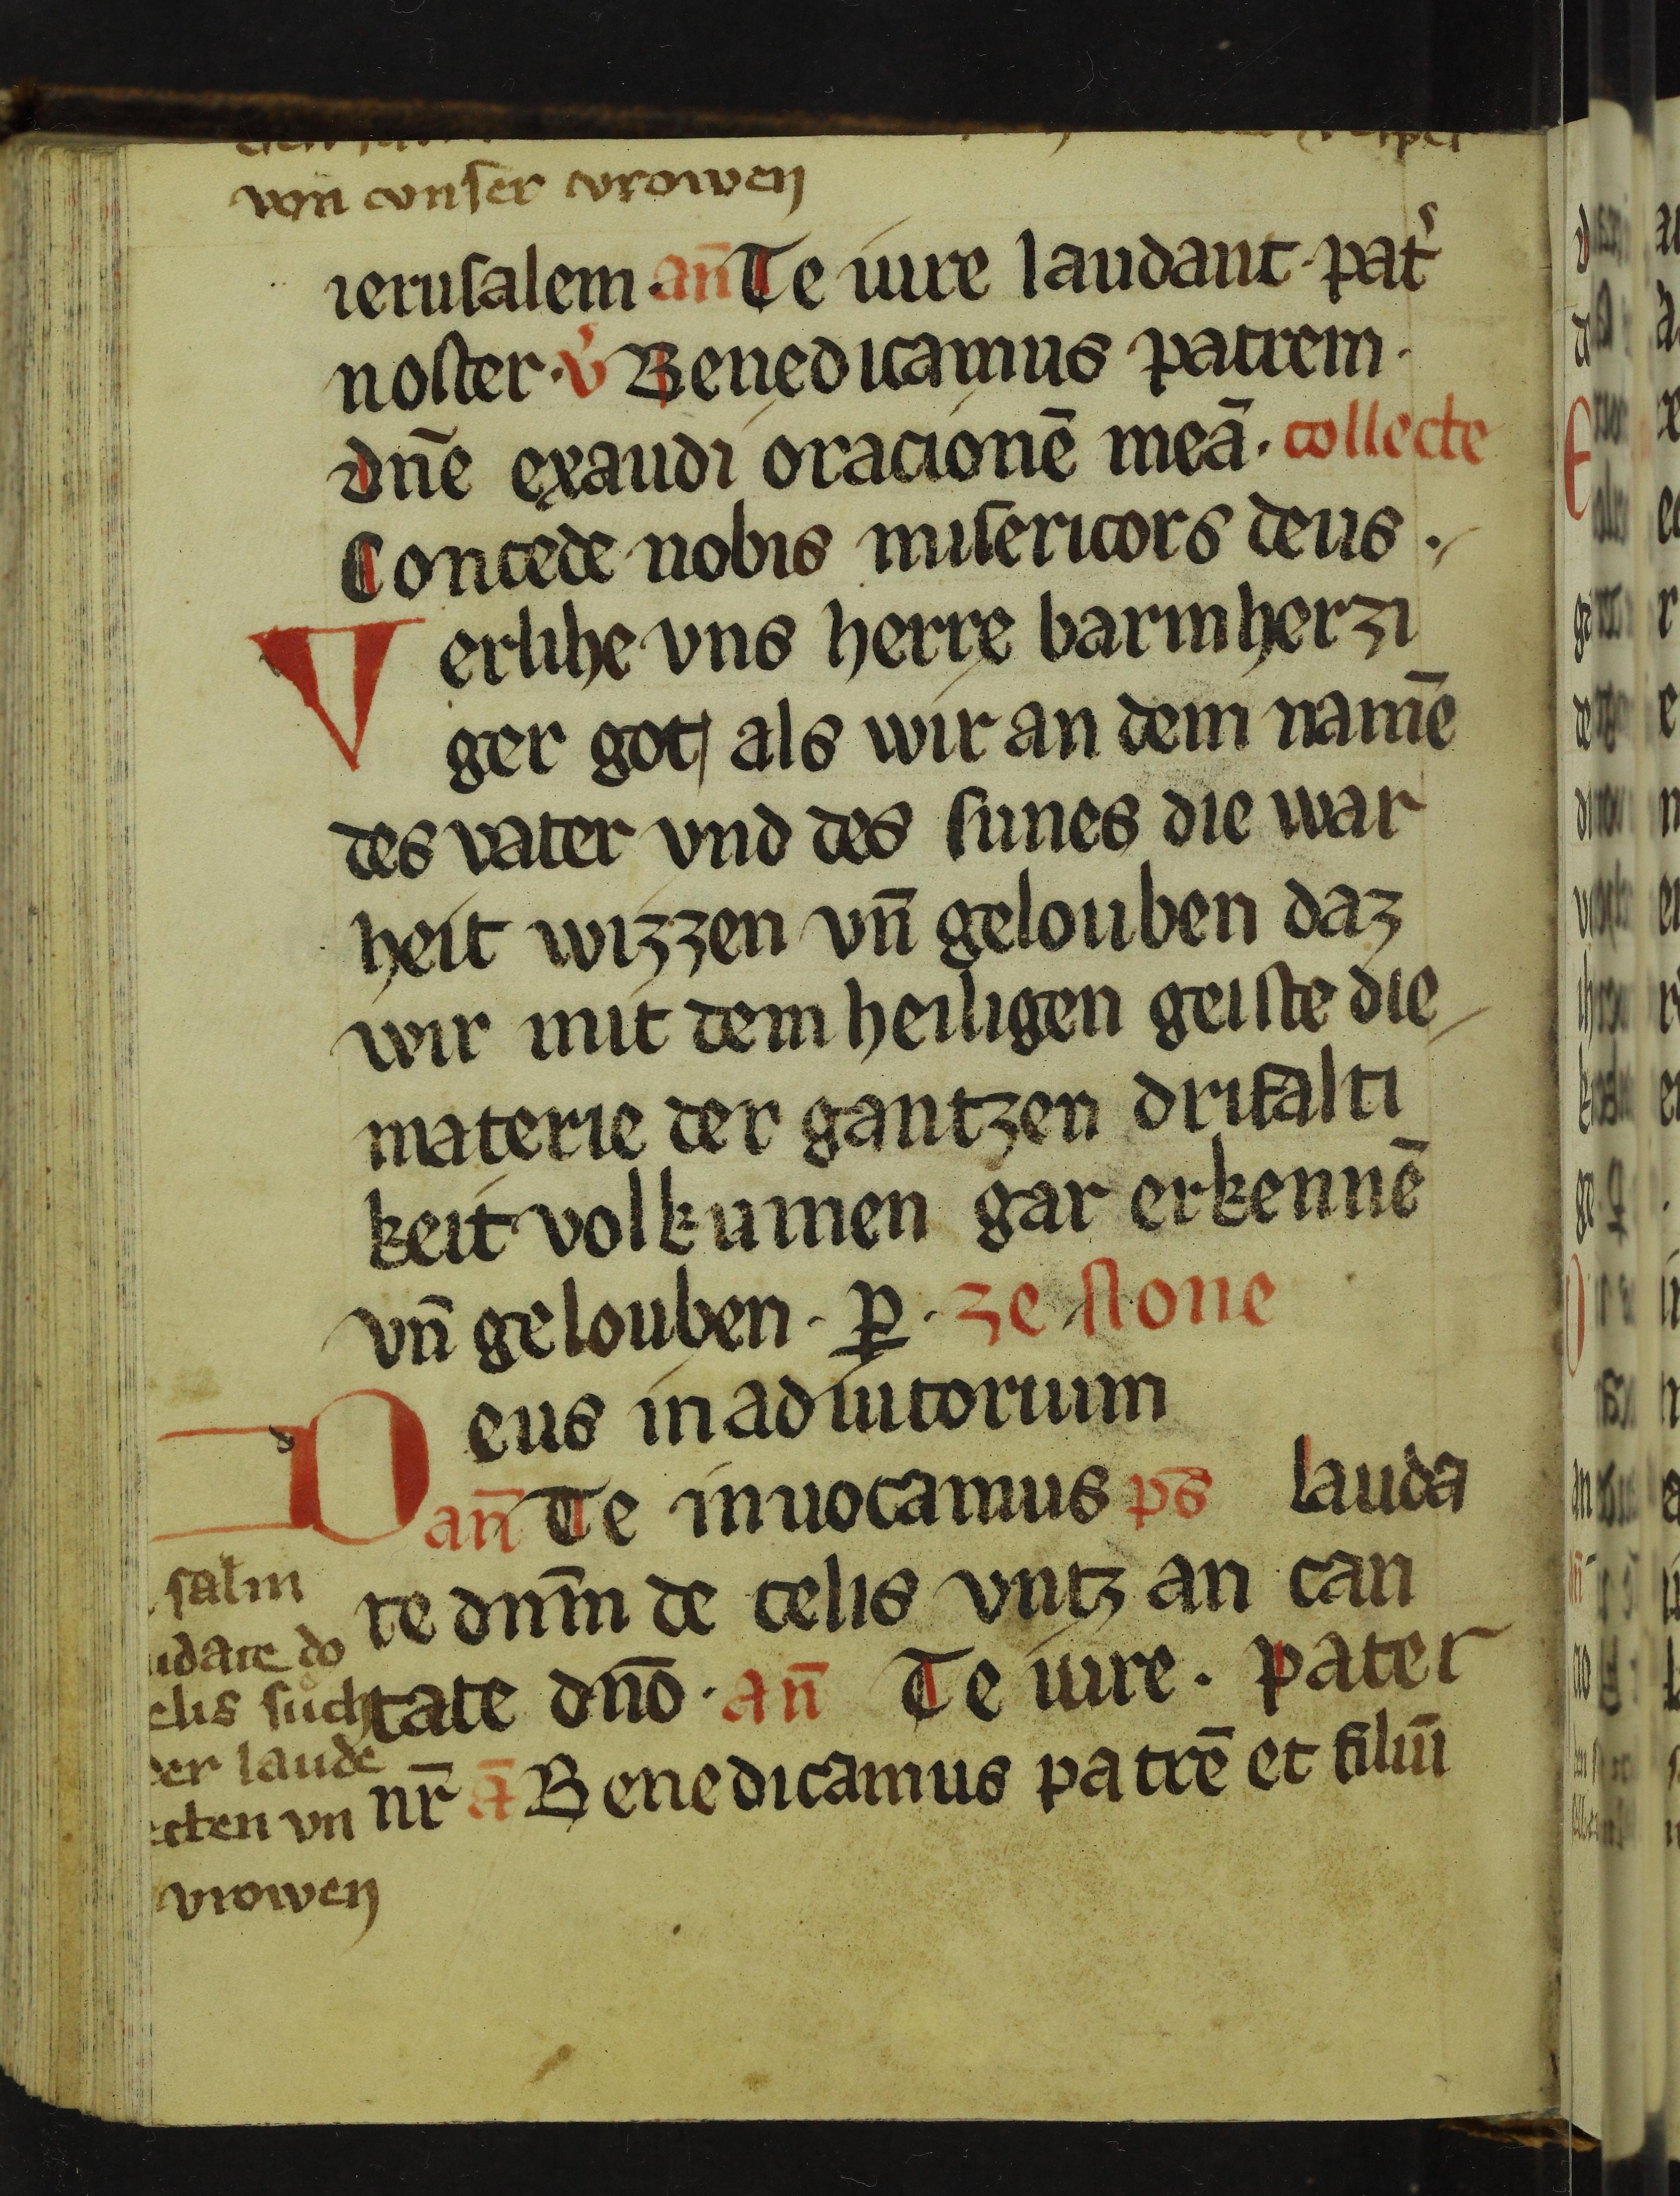 von vnser vrowen
ierusalem · an̄ Te iure laudant · pat͛
noster · v͛ Benedicamus patrem ·
dn̄e exaudi oracionē meā · collecte
Concede nobis misericors deus ·
Verlihe vns herre barmherzi
ger got als wir an dem namē
des vater vnd des sunes die war
heit wizzen vn̄ gelouben daz
wir mit dem heiligen geiste die
materie der gantzen drifalti
keit volkumen gar erkennē
vn̄ gelouben · ꝑ · ze none
Deus in adiutorium
an̄ Te inuocamus ps̄ lauda
te dn̄m de celis vntz an can
tate dn̄o · an̄ Te iure · pater
nr̄ ā Benedicamus patrē et filiū
salm
udate do
elis such
er laude
ecten vn
vrowen